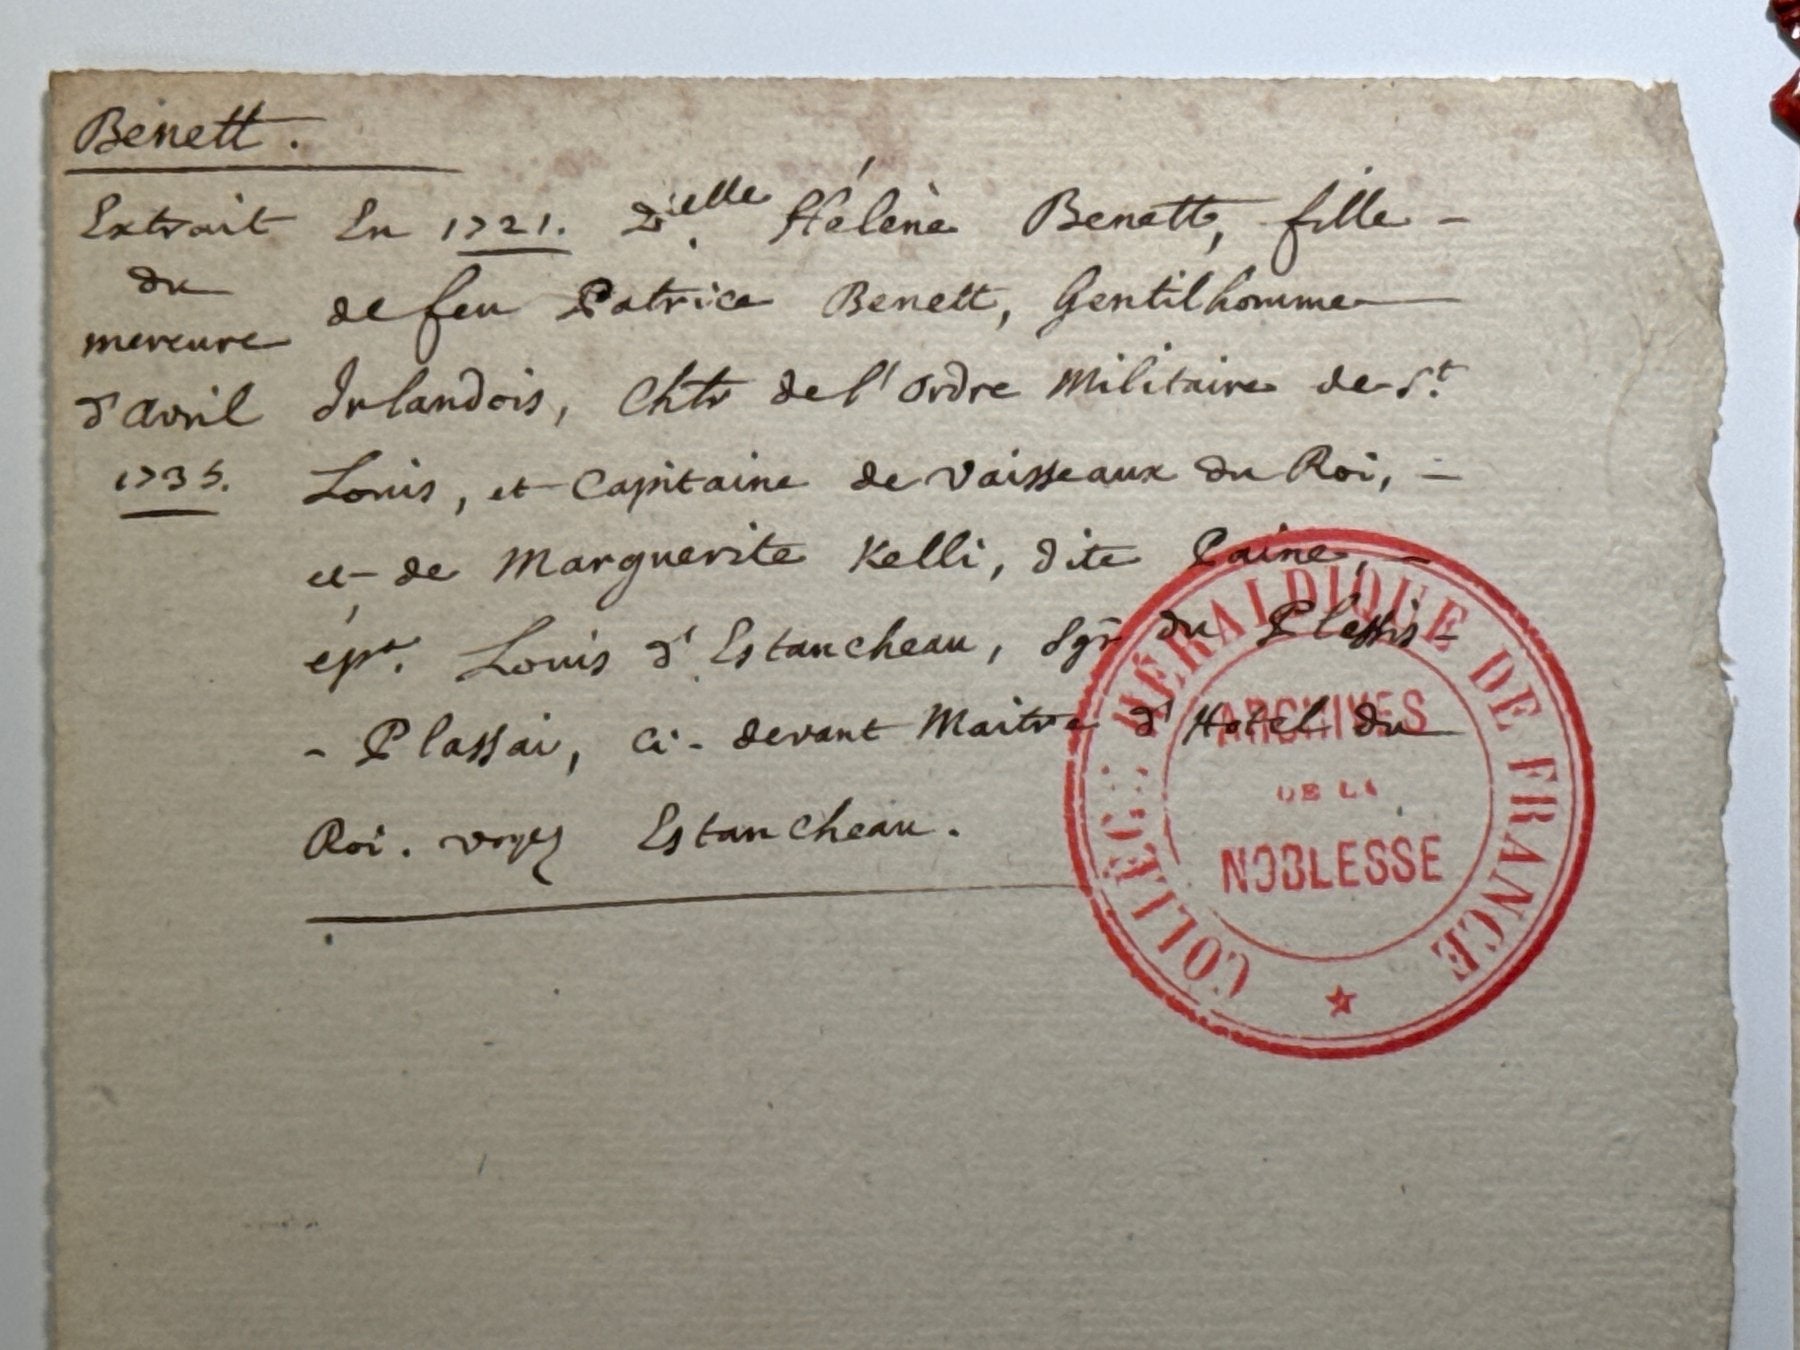 Benett.
Extrait
du
mercure
d'avril
1735.
En 1721. Dielle. Hélène Benett, fille -
de feu Patrice Benett, Gentilhomme
Irlandois, Chtr de l'ordre Militaire de St.
Louis, et Capitaine de Vaisseaux du Roi, -
et de Marguerite Kelli, dite Paine, -
épa. Louis d'Estancheau, Sgr du Plessis -
- Plassai, ci-devant Maitre d'Hotel du
Roi. voyez Estancheau.
COLLEC.: HÉRALDIQUE DE FRANCE
ARCHIVES
DE LA
NOBLESSE